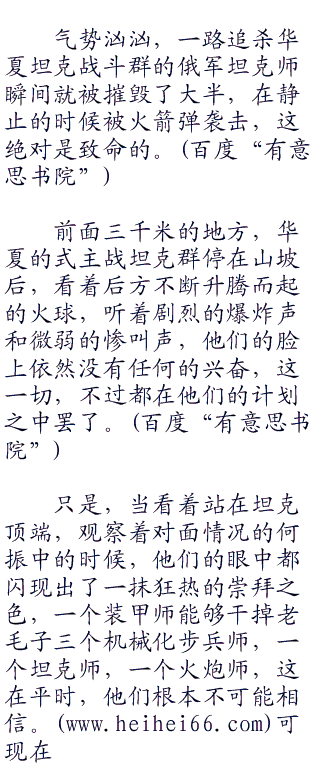 气势汹汹，一路追杀华
夏坦克战斗群的俄军坦克师
瞬间就被摧毁了大半，在静
止的时候被火箭弹袭击，这
绝对是致命的。(百度“有意
思书院”)
前面三千米的地方，华
夏的式主战坦克群停在山坡
后，看着后方不断升腾而起
的火球，听着剧烈的爆炸声
和微弱的惨叫声，他们的脸
上依然没有任何的兴奋，这
一切，不过都在他们的计划
之中罢了。(百度“有意思书
院”)
只是，当看着站在坦克
顶端，观察着对面情况的何
振中的时候，他们的眼中都
闪现出了一抹狂热的崇拜之
色，一个装甲师能够干掉老
毛子三个机械化步兵师，一
个坦克师，一个火炮师，这
在平时，他们根本不可能相
信。(www.heihei66.com)可
现在